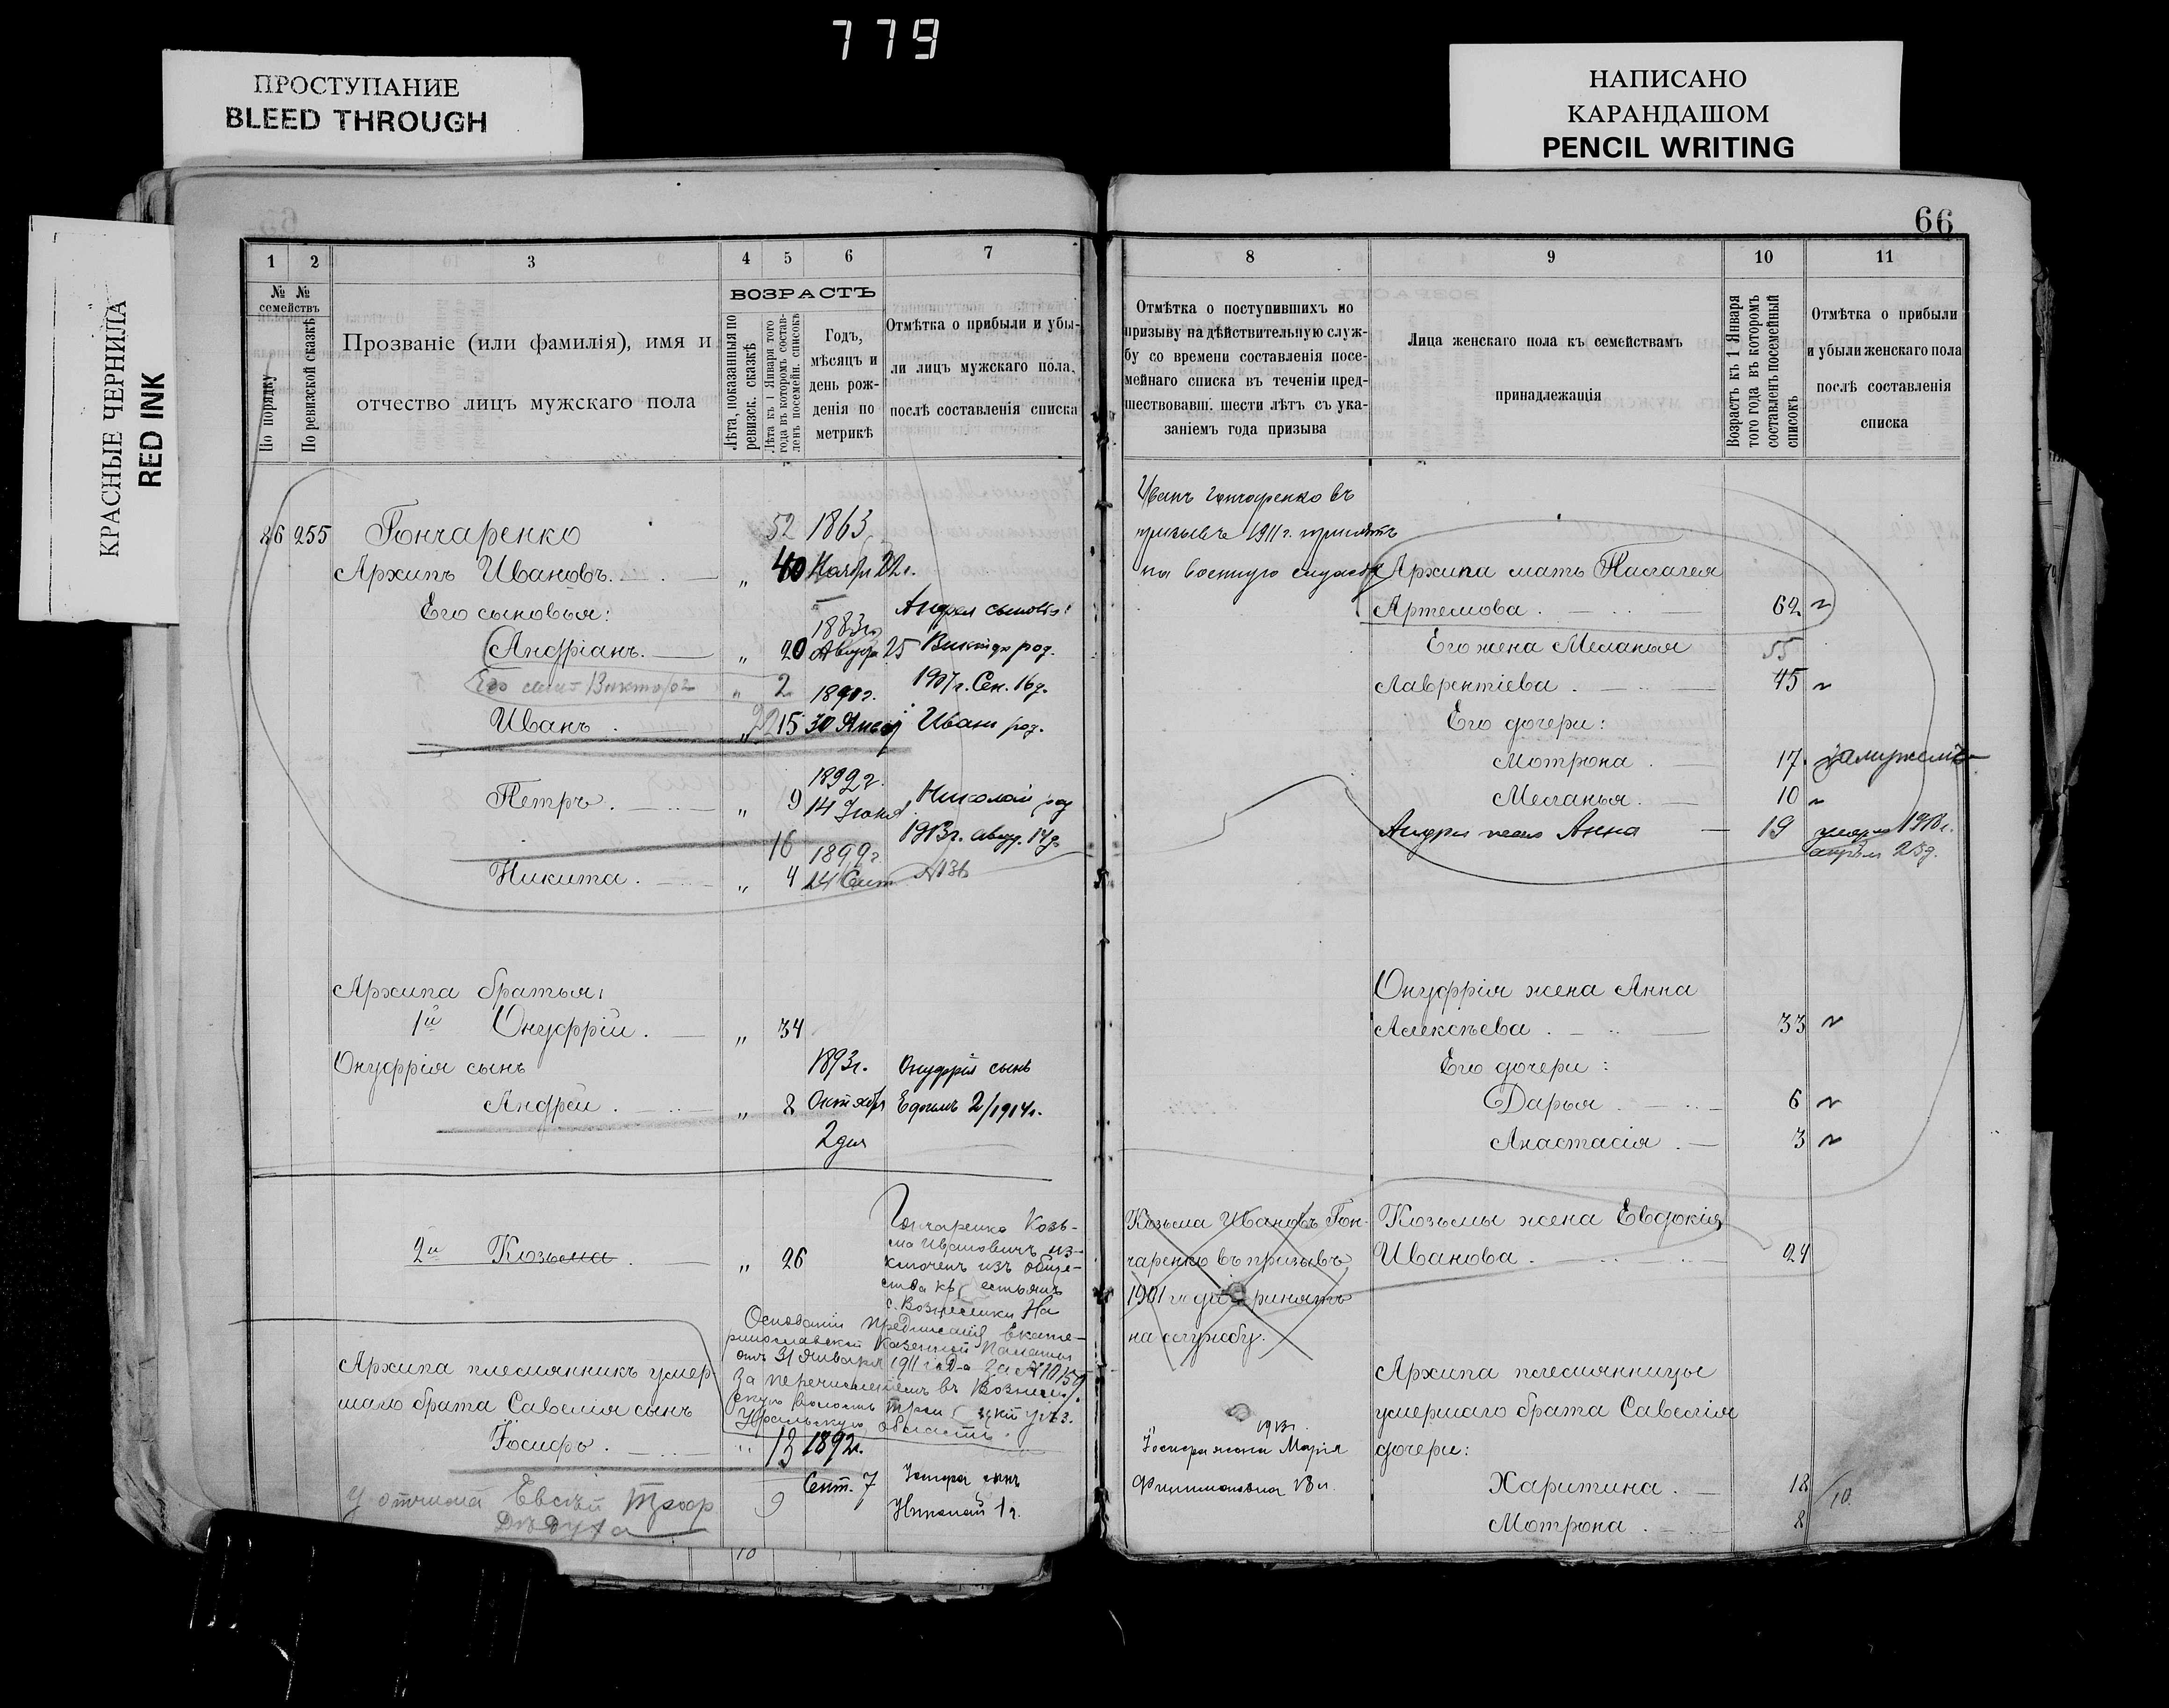 779
ПРОСТУПАНИЕ
BLEED THROUGH
НАПИСАНО
КАРАНДАШОМ
PENCIL WRITING
КРАСНЫЕ ЧЕРНИЛА
RED INK
66
1 2 3 4 5 6 7
№ № семействъ
По порядку
По ревизской сказкѣ
Прозваніе (или фамилія), имя и
отчество лицъ мужскаго пола
ВОЗРАСТЪ
Лѣта, показанныя по
ревизск. сказкѣ
Лѣта къ 1 Января того
года въ которомъ состав-
ленъ посемейн. списокъ
Годъ,
мѣсяцъ и
день рож-
денія по
метрикѣ
Отмѣтка о прибыли и убы-
ли лицъ мужскаго пола,
послѣ составленія списка
86 255 Гончаренко 52 1863
Архипъ Ивановъ. „ 40 Ноябр 22.
Его сыновья: Андрея сыновья:
1883г.
Андріанъ. „ 20 Август 25 Викторъ род.
Его сынъ Викторъ „ 2 1890г. 1907г. Сен. 16д.
Иванъ. „ 15 30 Январ Иванъ род.
1899г.
Петръ. „ 9 14 Іюня Николай род
16 1899г. 1913г. авгу. 14д.
Никита. „ 4 14 Сент №136
Архипа братья:
1й Онуфрій. „ 34
Онуфрія сынъ 1893г. Онуфрія сынъ
Андрей. „ 8 Октября 2/1914г.
2 дня
2й Козьма. „ 26
Гончаренко Козь-
ма Ивановичъ ис-
ключенъ изъ обще-
ства крестьянъ
с. Вознесенки На
Основаніи предписанія Екате-
ринославской Казенной Палаты
отъ 31 Января 1911 года за №10159
за перечисленіемъ въ
скую волость уѣз.
Уральскую область.
Архипа племянникъ умер-
шаго брата Савелія сынъ
Іосифъ. „ 13 1892г.
Сент. 7 Іосифа сынъ
9 Николай 1г.
у отчима Евсѣй
8 9 10 11
Отмѣтка о поступившихъ по
призыву на дѣйствительную служ-
бу со времени составленія посе-
мейнаго списка въ теченіи пред-
шествовавш. шести лѣтъ съ ука-
заніемъ года призыва
Лица женскаго пола къ семействамъ
принадлежащія
Возрастъ къ 1 Января
того года въ которомъ
составленъ посемейный
списокъ
Отмѣтка о прибыли
и убыли женскаго пола
послѣ составленія
списка
Иванъ Гончаренко въ
призывъ 1911г. принятъ
на военную службу
Архипа мать Палагея
Артемова. 62
Его жена Меланья 55
Лаврентіева. 45
Его дочери:
Мотрона. 17 замужемъ
Меланья. 10
Андрея жена Анна 19 умерла 1918г.
апрѣля 25д.
Онуфрія жена Анна
Алексѣева. 33
Его дочери:
Дарья. 6
Анастасія. 3
Козьма Ивановъ Гон-
чаренко въ призывъ
1901 года принятъ
на службу.
Козьмы жена Евдокія
Иванова. 24
1913г.
Іосифа жена Марія
Филимоновна 18л.
Архипа племянницы
умершаго брата Савелія
дочери:
Харитина. 18
Мотрона. 8
10.
10